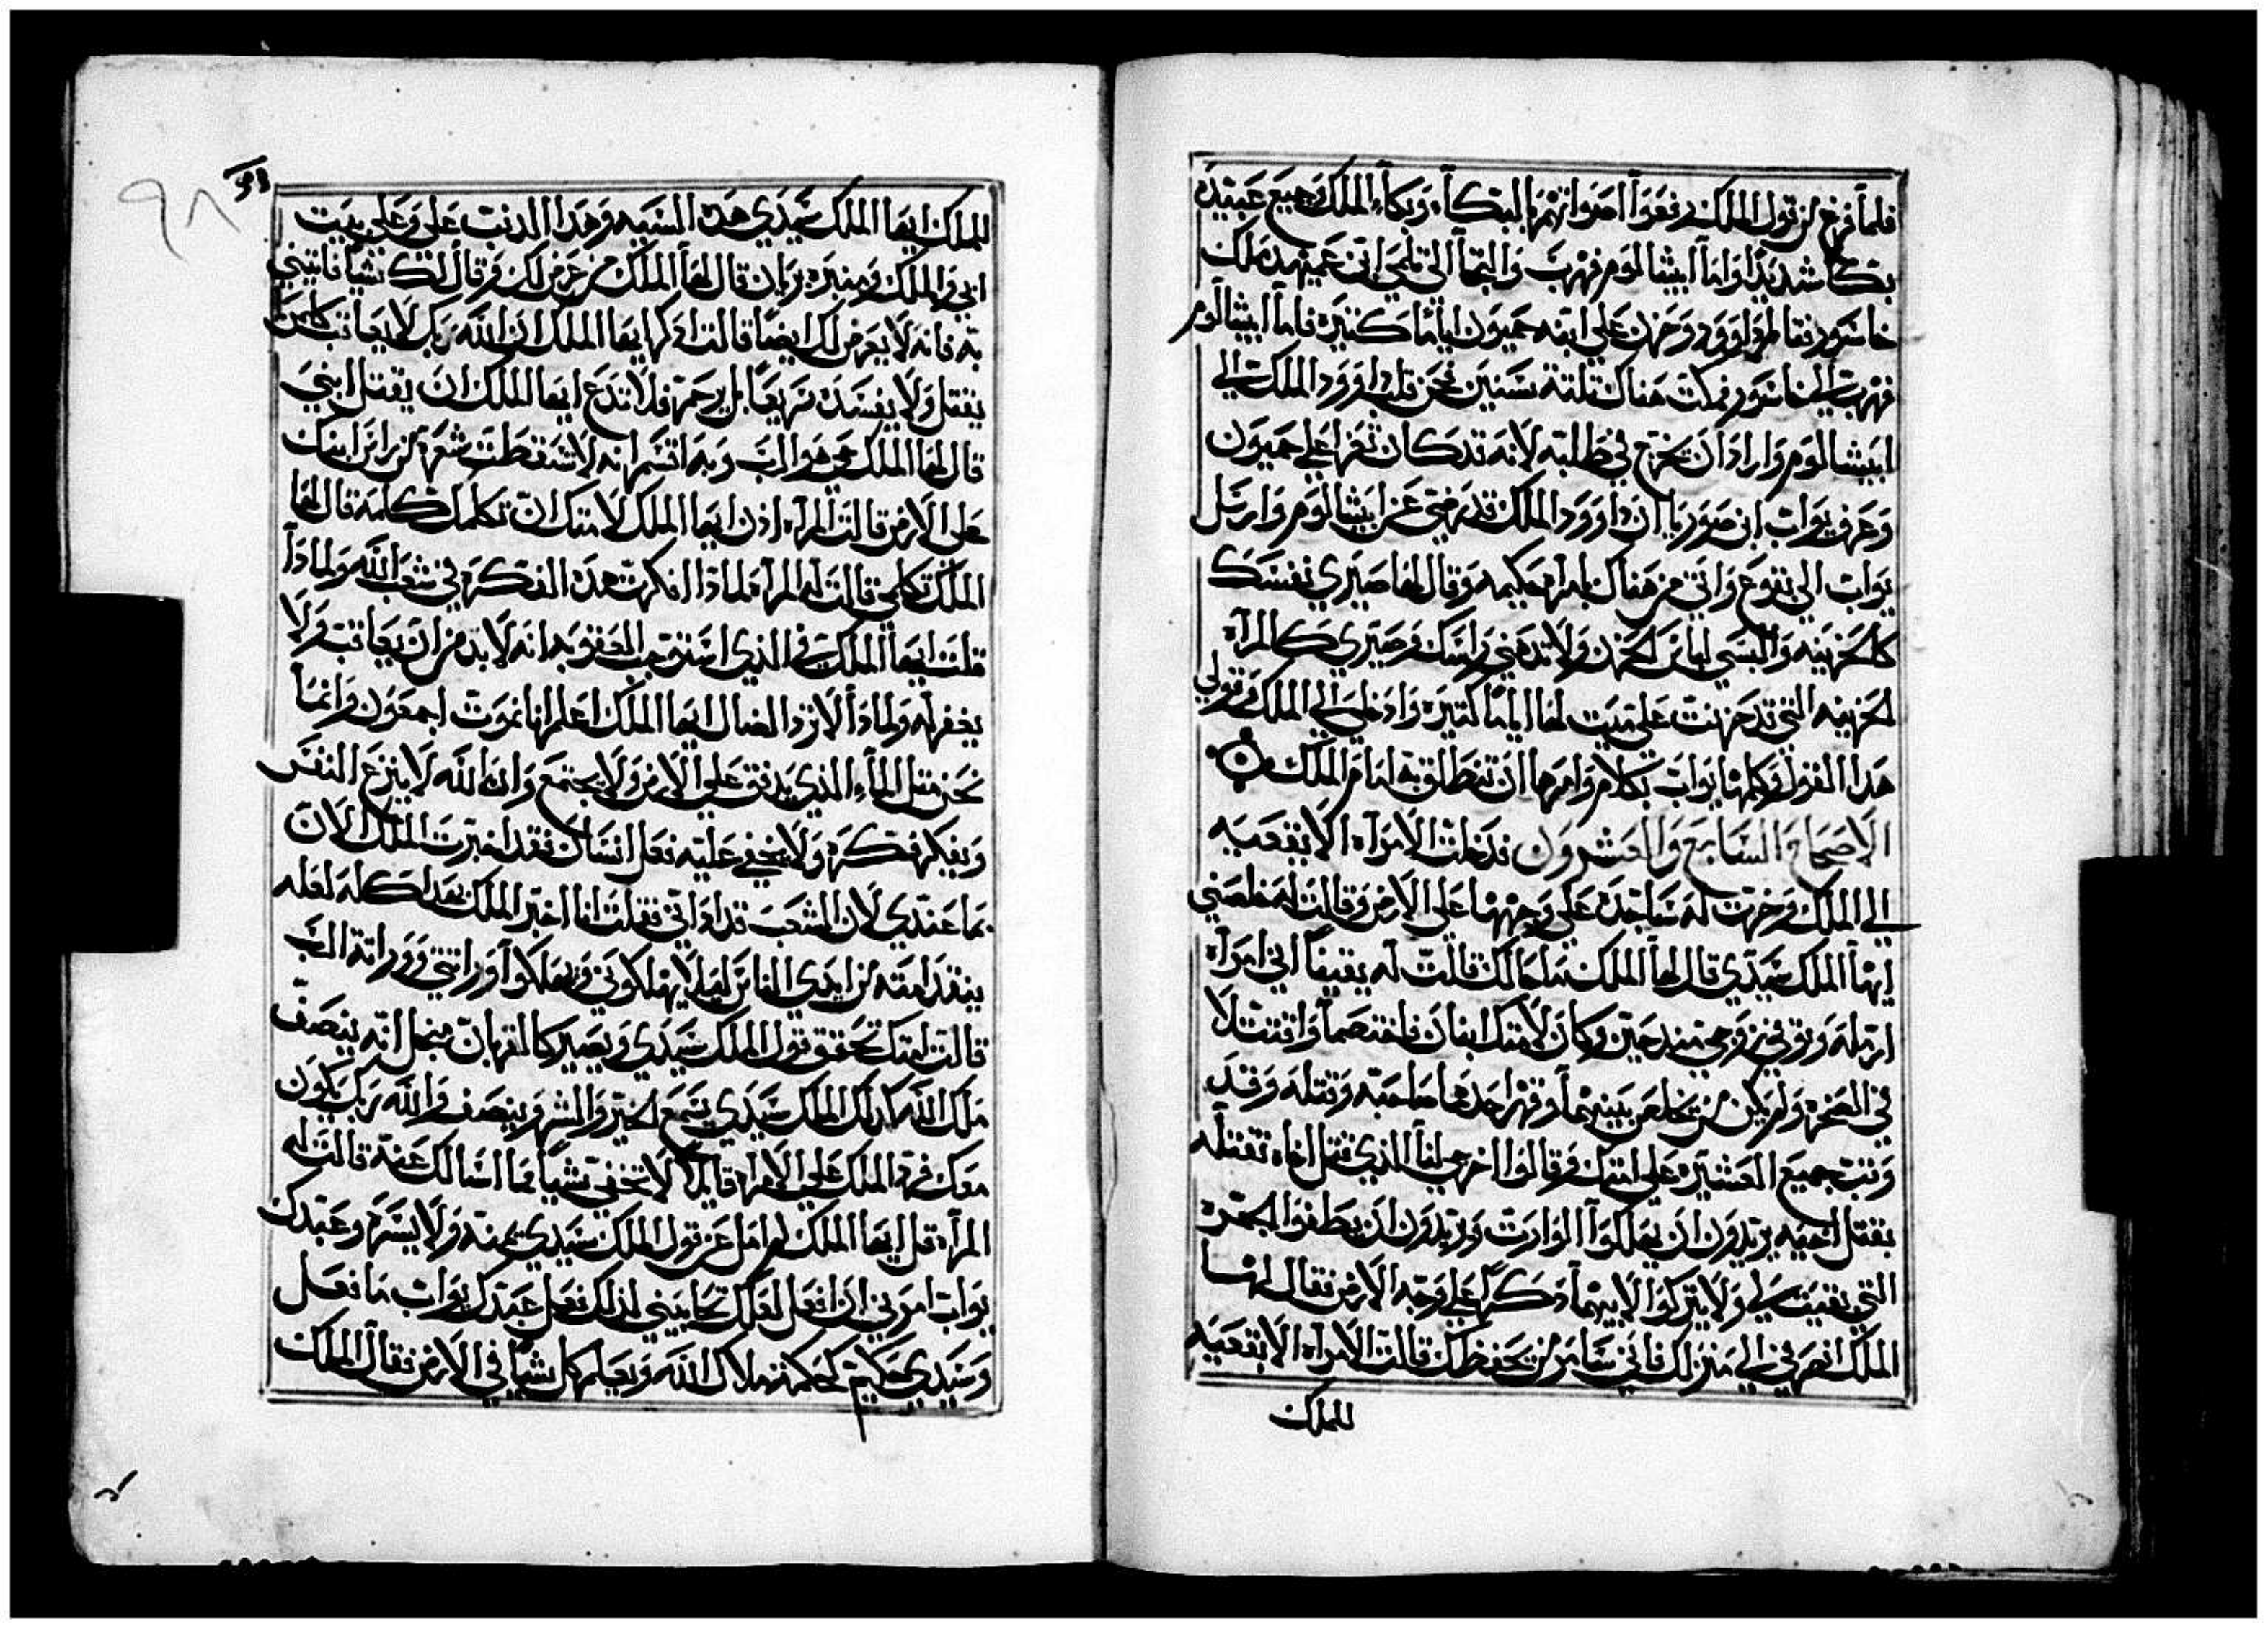 فلما فرغ من قول الملك رفعوا اصواتهم بالبكآء وبكاء الملك وجميع عبيده
بكا شديدا واما ابيشالوم فهرب والتجا الى تلمي ابن عميهد ملك
خاشور فقالمرداوود وحزن على ابنه حميون اياما كثيره فاما ابيشالوم
فهرب الى خاشور فمكث هناك ثلثة سنين فحن قلب داوود الملك الي
ابيشالوم واراد ان يخرج في طلبته لانه قد كان تعزا على حميون
وعرف يواب ابن صوريا ان داوود الملك قد رضي عن ابيشالوم وارسل
يواب الى تقوع واتى من هناك بامراه حكيمه وقال لها صيري نفسك
كالحزينه والبسي لباس الحزن ولا تدهني راسك وصيري كالمرآه
الحزينه التي قد حزنت على ميت لها اياما كثيره وادخلي الي الملك وقولي
هدا القول وكلمها يواب بكلام وامرها ان تنطلق به امام الملك
الاصحاح السابع والعشرون فدخلت الامرآه الاتقعيه
الي الملك وخرت له ساجدة على وجهها على الارض وقالت له خلصني
ايها الملك سيدي قال لها الملك ما حالك قالت له يقينا اني امرآه
ارمله وتوفي زوجي مند حين وكان لامتك ابنان فاختصما واقتتلا
في الصحره ولم يكن من يخلص بينهما وقهر احدهما صاحبه وقتله وقد
وثبت جميع العشيره على امتك وقالوا اخرجي لنا الذي قتل اخاه نقتله
بقتل اخيه يريدون ان يهلكوا الوارث ويريدون ان يطفوا الجمره
التي بقيت لي ولا يتركوا لابيهما دكرا على وجه الارض فقال لها
الملك انصرفي الي منزلك فاني سامر من يحفظك قالت الامرآه الاتقعيه
للملك
للملك ايها الملك سيدي هده السيه وهدا الدنب على وعلى بيت
ابي والملك ومنبره بريان قال لها الملك من عرض لك وقال لك شيا فاتيني
به فانه لا يعرض لك ايضا قالت ادكر ايها الملك ان الله ربك لا يعاقب كل من
يقتل ولا يفسده سريعا بل يرحمه فلا تدع ايها الملك ان يقتل ابني
قال لها الملك حي هو الرب وبه اقسم انه لا سقطت شعره من راس ابنك
على الارض قالت المرآه ادن ايها الملك لامتك ان تكلمك كلمه قال لها
الملك تكلمي قالت له المرآه لمادا افكرت هده الفكره في شعب الله ولمادا
قلت ايها الملك في الذي استوجب العقوبه انه لا بد من ان يعاقب ولا
يغفر له ولمادا لا ترد الضال ايها الملك اعلم اننا نموت اجمعون وانما
نحن مثل المآء الذي يدفق على الارض ولا يجتمع وان الله لا ينزع النفس
ويفكر فكره ولا يخفي عليه فعل انسان فقد اخبرت الملك الان
بما عندي لان الشعب قد اداني فقلت انا اخبر الملك بهدا كله لعله
ينقد امته من ايدي الناس ليلا يهلكوني ويهلكوا وراثتي ووراثة الرب
قالت امتك تحقق قول الملك سيدي ويصير كالقربان من اجل انه ينصف
ملك الله كدلك الملك سيدي يسمع الخير والشر وينصف والله ربك يكون
معك فرد الملك على الامراه قايلا لا تخفي شيا مما اسالك عنه قالت له
المرآه قل ايها الملك لم امل عن قول الملك سيدي يمنه ولا يسره وعبدك
يواب امرني ان افعل لعلك تحابيني لذلك فعل عبدك يواب ما فعل
وسيدي حكيم كحكمة ملاك الله ويعلم كل شيا في الارض فقال الملك